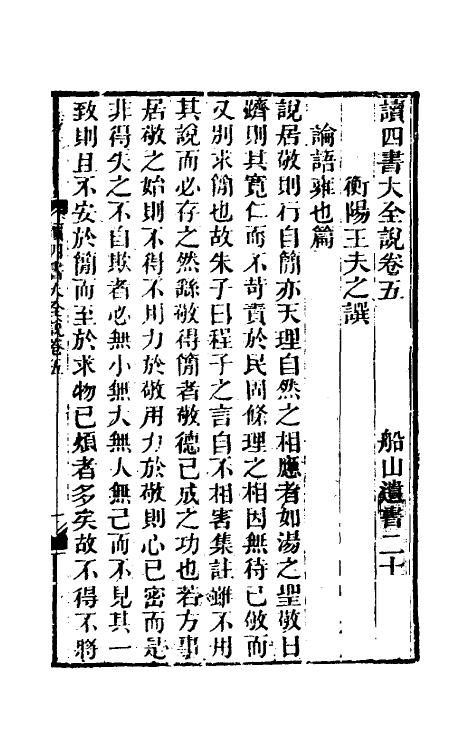 讀四書大全說卷五　船山遺書二十
衡陽王夫之譔
論語雍也篇
說居敬則行自簡亦天理自然之相應者如湯之聖敬日
躋則其寬仁而不苛責於民固條理之相因無待已敬而
又別求簡也故朱子曰程子之言自不相害集註雖不用
其說而必存之然繇敬得簡者敬德已成之功也若方事
居敬之始則不得不用力於敬用力於敬則心已密而是
非得失之不自欺者必無小無大無人無己而不見其一
致則且不安於簡而至於求物已煩者多矣故不得不將
讀四書大全說卷五